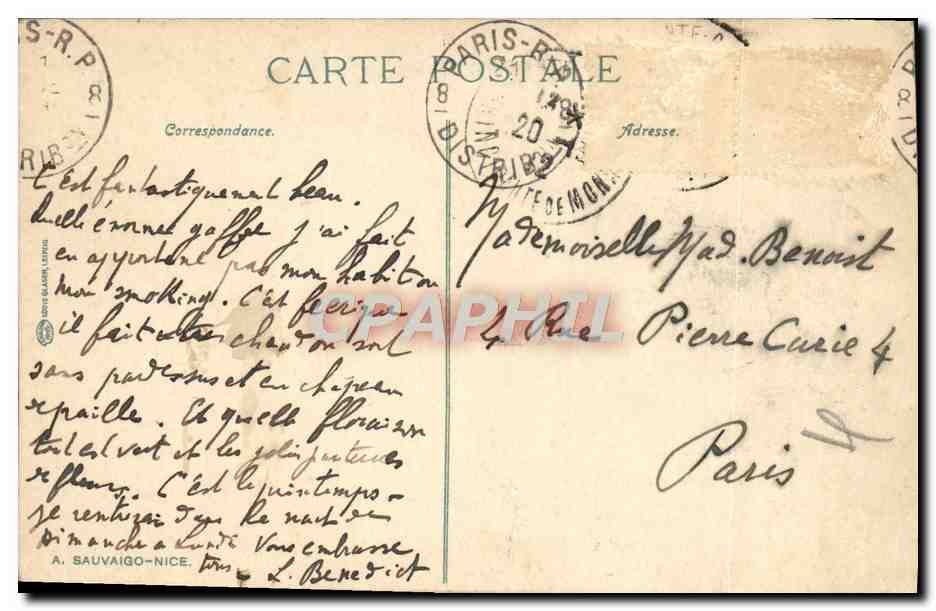 CARTE POSTALE
Correspondance.
Adresse.
PARIS-R.P
8 8
DISTRIB
20
PARIS-R.P
8
DISTRIB
TE DE MON
C'est fantastiquement beau.
Quelle énorme gaffe j'ai fait
en apportant pas mon habit ou
mon smoking. C'est féerique
il fait très chaud on sort
sans pardessus et en chapeau
de paille. Et quelle floraison
tout est vert et les jolis parterres
de fleurs. C'est le printemps -
je rentrerai dans la nuit de
Dimanche a Lundi Vous embrasse
tous L. Benedict
Mademoiselle Mad. Benoist
4 Rue Pierre Curie 4
Paris
LOUIS GLASER, LEIPZIG
A. SAUVAIGO-NICE.
CPAPHIL